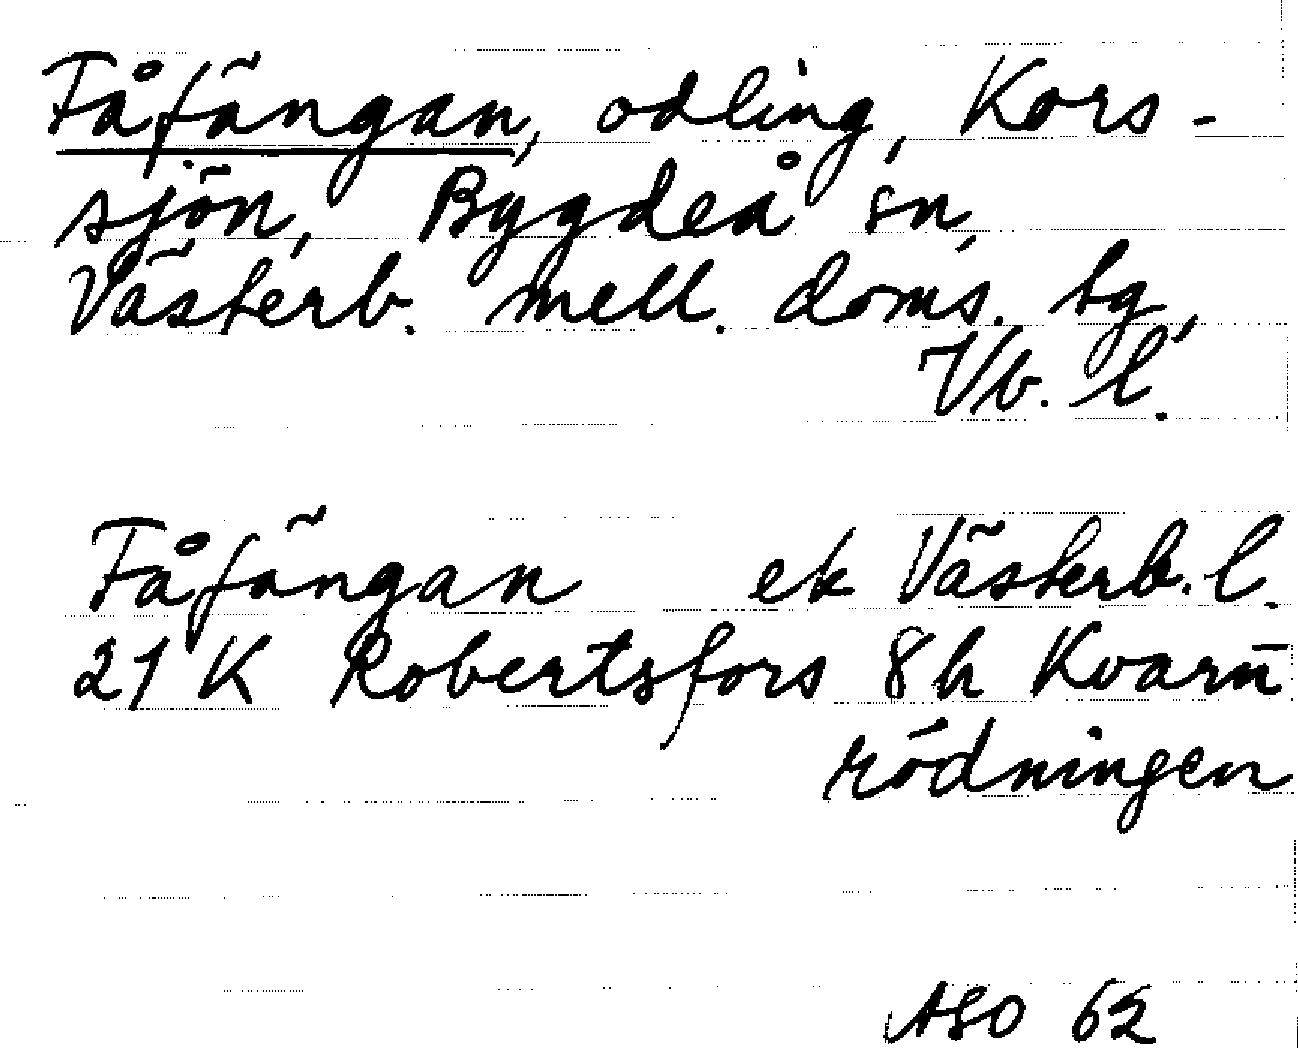 Fåfängan, odling, Kors-
sjön, Bygdeå sn,
Västerb. mell. doms. tg,
Vb. l.
Fåfängan ek Västerb. l.
21 K Robertsfors 8h Kvarn̄
rödningen
ASO 62